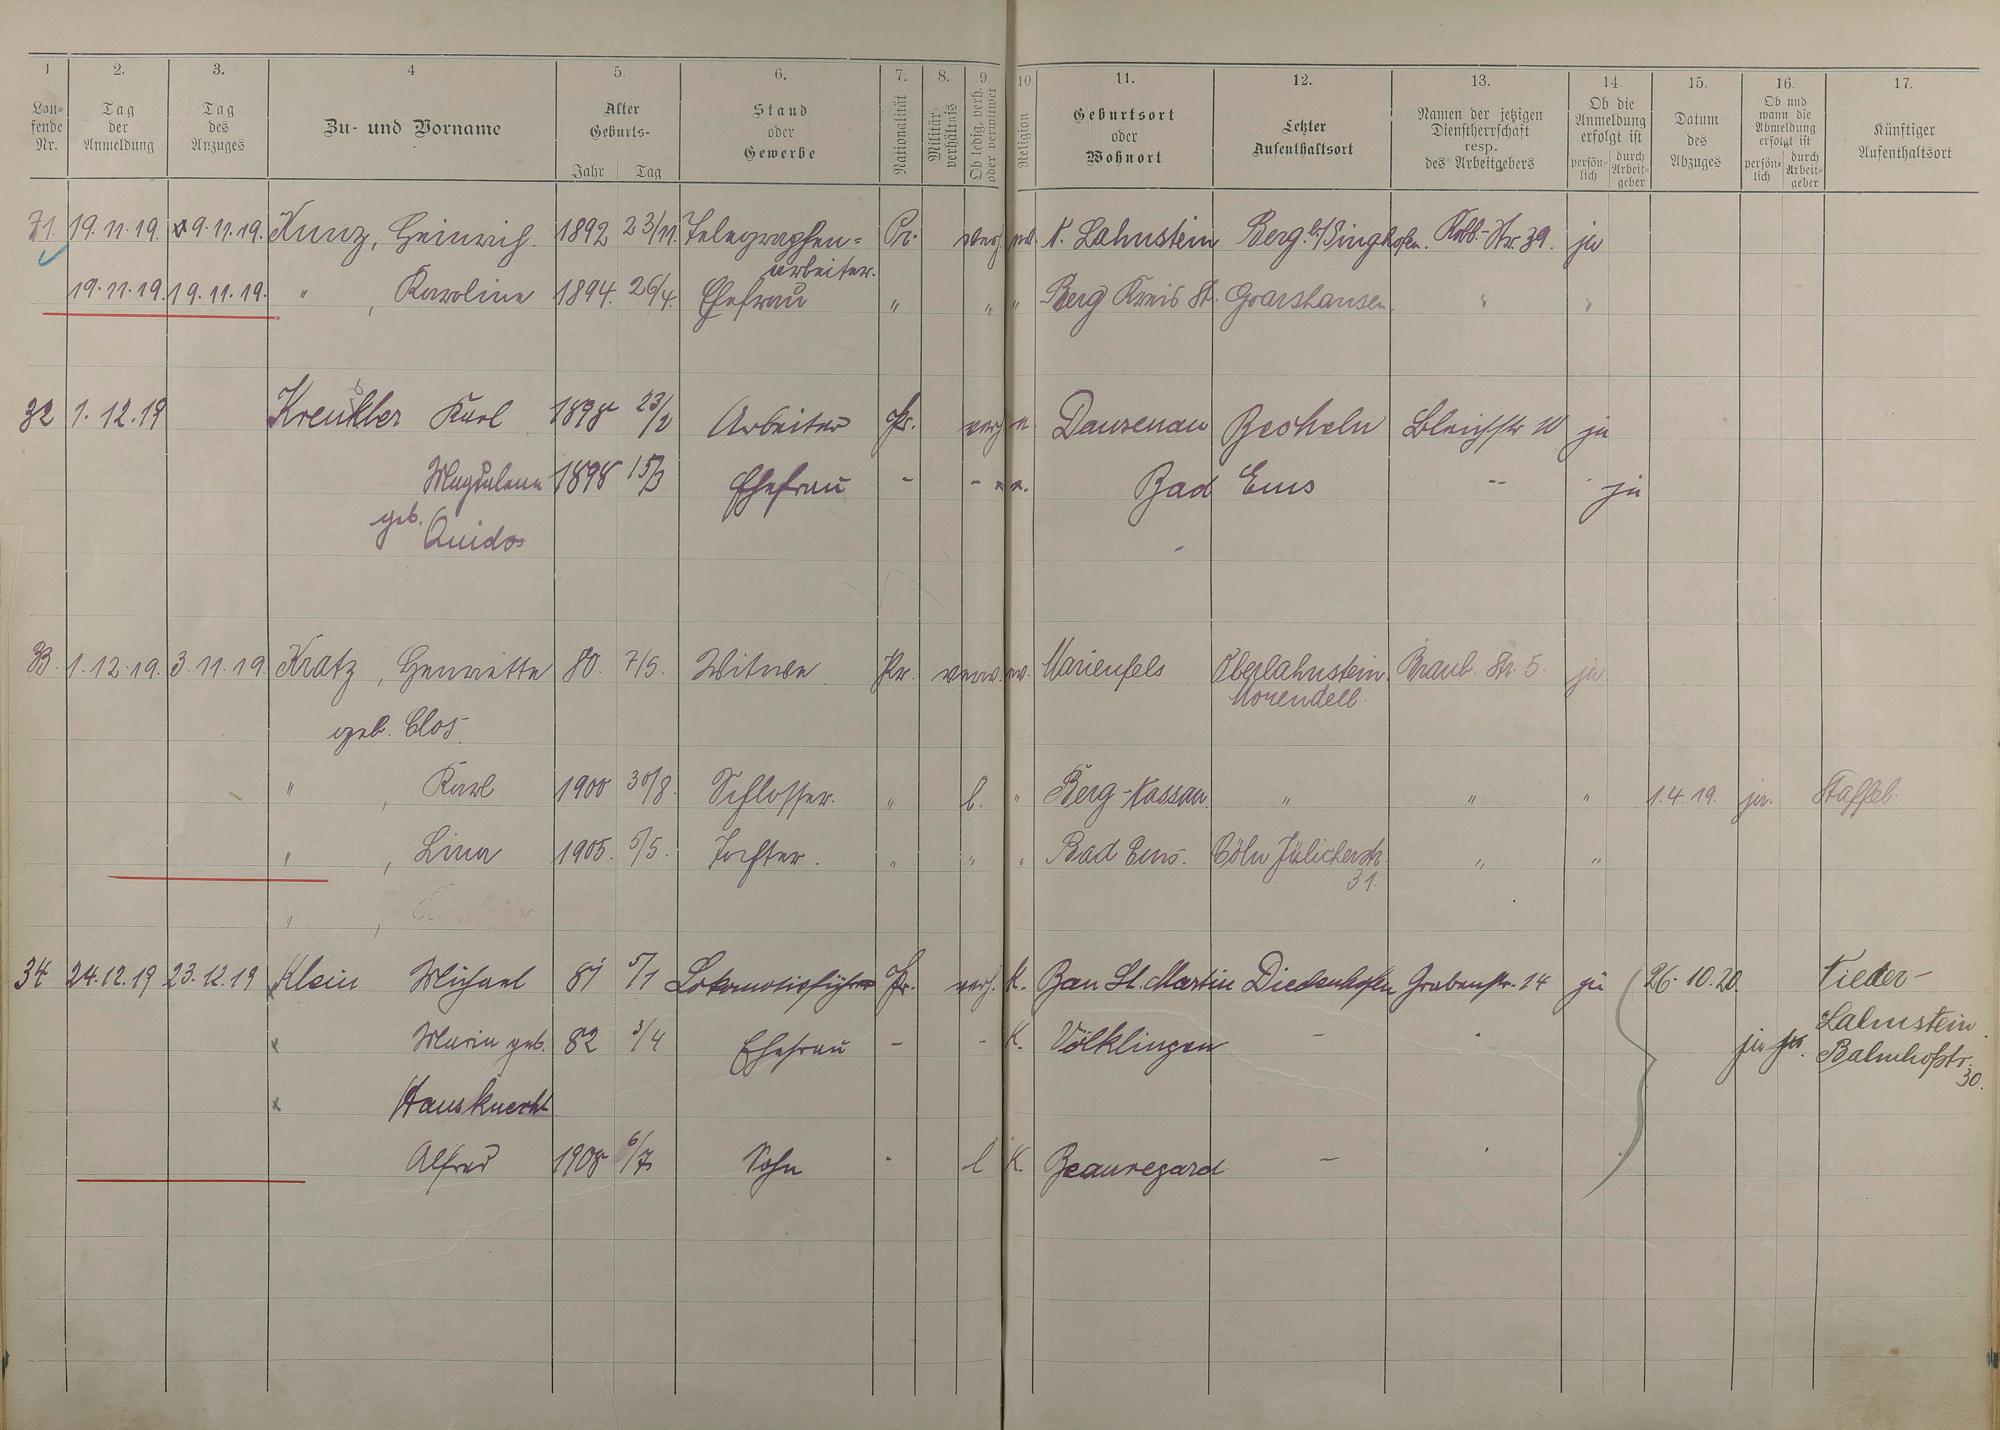 1 2. 3. 4 5. 6. 7. 8. 9. 10. 11. 12. 13. 14. 15. 16. 17.
Lau-
fende
Nr.
Tag
der
Anmeldung
Tag
des
Anzuges
Zu- und Vorname
Alter
Geburts-
Jahr Tag
Stand
oder
Gewerbe
Nationalität
Militär-
verhältnis
Ob ledig, verh.
oder verwitwet
Religion
Geburtsort
oder
Wohnort
Letzter
Aufenthaltsort
Namen der jetzigen
Dienstherrschaft
resp.
des Arbeitgebers
Ob die
Anmeldung
erfolgt ist
persön-
lich
durch
Arbeit-
geber
Datum
des
Abzuges
Ob und
wann die
Abmeldung
erfolgt ist
persön-
lich
durch
Arbeit-
geber
Künftiger
Aufenthaltsort
19.11.19. 9.11.19. Kunz, Heinrich. 1892 23/11. Telegraphen- Pr. verh. N. Lahnstein Berg b/Singhofen. Str. 39. ja
arbeiter.
19.11.19. 19.11.19. " , Karoline 1894. 26/4. Ehefrau " " " Berg Kreis St. Goarshausen. " "
32 1.12.19 Karl 1898 23/2 Arbeiter Pr. verh e. Dausenau Becheln Bleichstr 10 ja
Magdalena 1898 15/3 Ehefrau - - e. Bad Ems -- ja
geb.
Quidos
33. 1.12.19. 3.11.19. Kratz, Henriette 80. 7/5. Witwe Pr. verw. ev. Marienfels Oberlahnstein. Braub. Str. 5. ja
geb. Clos.
" , Karl 1900 30/8. Schlosser. " l. " Berg-Nassau " " " 1.4.19. ja. Staffel.
" , Lina 1905. 5/5. Tochter. " " " Bad Ems. Cöln Jülicherstr. " "
31.
" ,
34 24.12.19 23.12.19 Klein Michael 81 5/1 Lokomotivführer Pr. verh. K. Ban St. Martin Diedenhofen Grabenstr. 14 ja 26.10.20. Nieder-
Lahnstein
Maria geb. 82 3/4 Ehefrau - - K. Völklingen - ja Bahnhofstr.
30.
Hausknecht
Alfred 1908 6/7 Sohn l K. Beauregard -